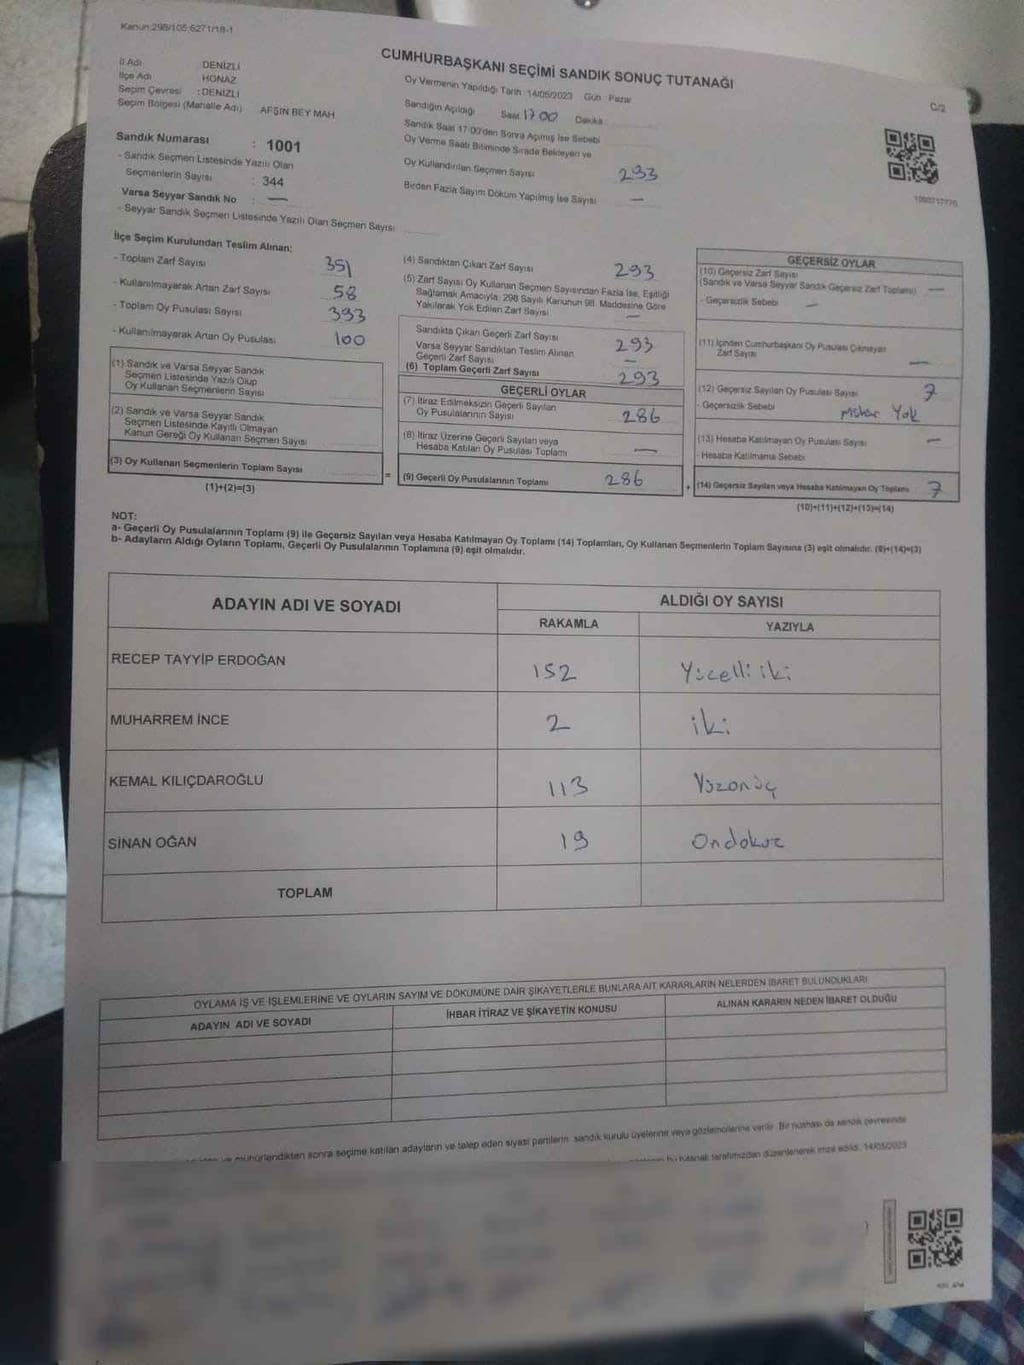 Kanun:298/105;6271/18-1
CUMHURBAŞKANI SEÇİMİ SANDIK SONUÇ TUTANAĞI
C/2
İl Adı DENİZLİ
İlçe Adı HONAZ
Seçim Çevresi : DENİZLİ
Seçim Bölgesi (Mahalle Adı) AFŞIN BEY MAH
Sandık Numarası : 1001
- Sandık Seçmen Listesinde Yazılı Olan
Seçmenlerin Sayısı : 344
Varsa Seyyar Sandık No : —
- Seyyar Sandık Seçmen Listesinde Yazılı Olan Seçmen Sayısı
Oy Vermenin Yapıldığı Tarih 14/05/2023 Gün Pazar
Sandığın Açıldığı Saat 17 00 Dakika
Sandık Saat 17:00'den Sonra Açılmış İse Sebebi
Oy Verme Saati Bitiminde Sırada Bekleyen ve
Oy Kullandırılan Seçmen Sayısı 293
Birden Fazla Sayım Döküm Yapılmış İse Sayısı —
İlçe Seçim Kurulundan Teslim Alınan:
- Toplam Zarf Sayısı 351
- Kullanılmayarak Artan Zarf Sayısı 58
- Toplam Oy Pusulası Sayısı 393
- Kullanılmayarak Artan Oy Pusulası 100
(1) Sandık ve Varsa Seyyar Sandık
Seçmen Listesinde Yazılı Olup
Oy Kullanan Seçmenlerin Sayısı
(2) Sandık ve Varsa Seyyar Sandık
Seçmen Listesinde Kayıtlı Olmayan
Kanun Gereği Oy Kullanan Seçmen Sayısı
(3) Oy Kullanan Seçmenlerin Toplam Sayısı
(1)+(2)=(3)
=
(4) Sandıktan Çıkan Zarf Sayısı 293
(5) Zarf Sayısı Oy Kullanan Seçmen Sayısından Fazla İse, Eşitliği
Sağlamak Amacıyla; 298 Sayılı Kanunun 98. Maddesine Göre
Yakılarak Yok Edilen Zarf Sayısı —
Sandıkta Çıkan Geçerli Zarf Sayısı 293
Varsa Seyyar Sandıktan Teslim Alınan
Geçerli Zarf Sayısı —
(6) Toplam Geçerli Zarf Sayısı 293
GEÇERLİ OYLAR
(7) İtiraz Edilmeksizin Geçerli Sayılan
Oy Pusulalarının Sayısı 286
(8) İtiraz Üzerine Geçerli Sayılan veya
Hesaba Katılan Oy Pusulası Toplamı —
(9) Geçerli Oy Pusulalarının Toplamı 286
+
GEÇERSİZ OYLAR
(10) Geçersiz Zarf Sayısı
(Sandık ve Varsa Seyyar Sandık Geçersiz Zarf Toplamı) —
- Geçersizlik Sebebi —
(11) İçinden Cumhurbaşkanı Oy Pusulası Çıkmayan
Zarf Sayısı —
(12) Geçersiz Sayılan Oy Pusulası Sayısı 7
- Geçersizlik Sebebi Mühür Yok
(13) Hesaba Katılmayan Oy Pusulası Sayısı —
- Hesaba Katılmama Sebebi
(14) Geçersiz Sayılan veya Hesaba Katılmayan Oy Toplamı 7
(10)+(11)+(12)+(13)=(14)
NOT:
a- Geçerli Oy Pusulalarının Toplamı (9) ile Geçersiz Sayılan veya Hesaba Katılmayan Oy Toplamı (14) Toplamları, Oy Kullanan Seçmenlerin Toplam Sayısına (3) eşit olmalıdır. (9)+(14)=(3)
b- Adayların Aldığı Oyların Toplamı, Geçerli Oy Pusulalarının Toplamına (9) eşit olmalıdır.
ADAYIN ADI VE SOYADI ALDIĞI OY SAYISI
RAKAMLA YAZIYLA
RECEP TAYYİP ERDOĞAN 152 Yüzelli iki
MUHARREM İNCE 2 iki
KEMAL KILIÇDAROĞLU 113 Yüzonüç
SİNAN OĞAN 19 Ondokuz
TOPLAM
OYLAMA İŞ VE İŞLEMLERİNE VE OYLARIN SAYIM VE DÖKÜMÜNE DAİR ŞİKAYETLERLE BUNLARA AİT KARARLARIN NELERDEN İBARET BULUNDUKLARI
ADAYIN ADI VE SOYADI İHBAR İTİRAZ VE ŞİKAYETİN KONUSU ALINAN KARARIN NEDEN İBARET OLDUĞU
ve mühürlendikten sonra seçime katılan adayların ve talep eden siyasi partilerin sandık kurulu üyelerine veya gözlemcilerine verilir. Bir nüshası da sandık çevresinde
bu tutanak tarafımızdan düzenlenerek imza edildi. 14/05/2023